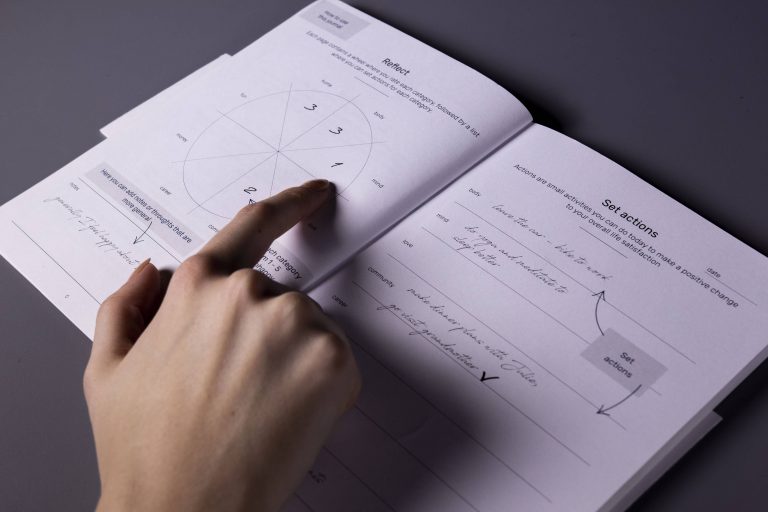 How to use
this journal
Reflect
Each page contains a wheel where you rate each category, followed by a list
where you can set actions for each category.
home
fun
body
money
mind
career
3
3
1
2
Here you can add notes or thoughts that are
more general
notes
possible, I feel happy about
category
1 - 5
Set actions
Actions are small activities you can do today to make a positive change
to your overall life satisfaction
date
body
leave the car - bike to work
mind
do yoga and meditate to
sleep better
love
community
make dinner plans with Julie,
go visit grandmother
career
Set
actions